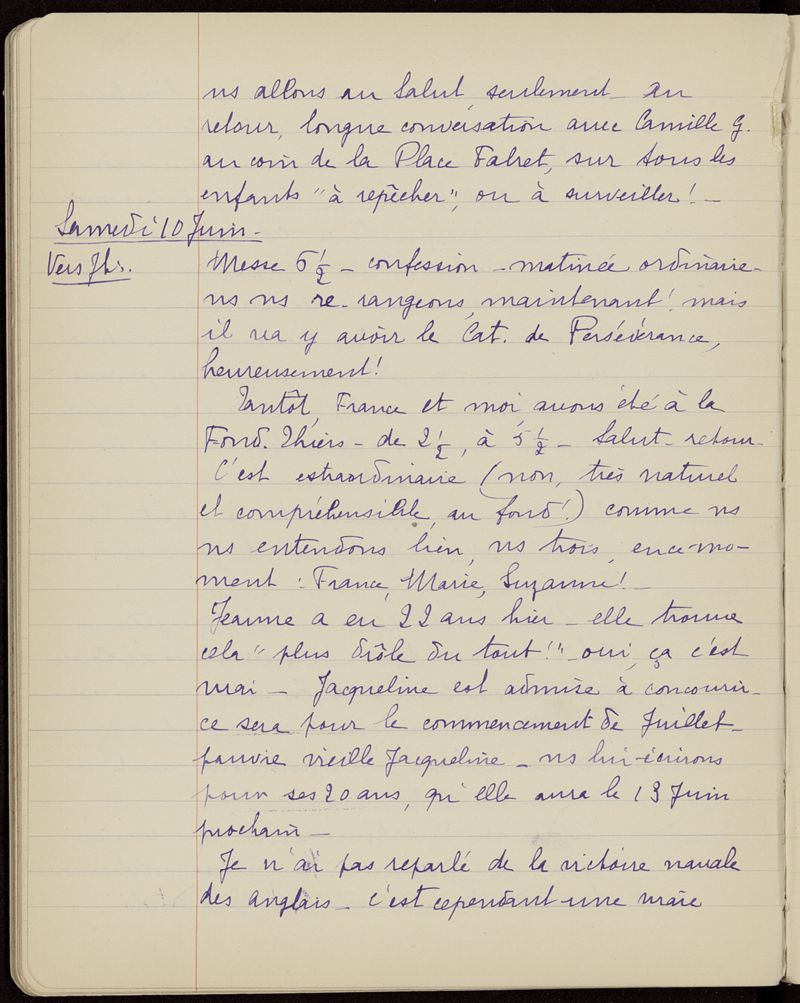 ns allons au Salut, seulement - au
retour, longue conversation avec Camille G.
au coin de la Place Falret, sur tous les
enfants "à repêcher", ou à surveiller! -
Samedi 10 Juin -
Vers 7h. Messe 6 1/2 - confession - matinée ordinaire -
ns ns re-rangeons, maintenant! mais
il va y avoir le Cat. de Persévérance,
heureusement!
Tantôt, France et moi avons été à la
Fond. Thiers - de 2 1/2, à 5 1/2 - Salut - retour -
C'est extraordinaire (non, très naturel
et compréhensible, au fond!) comme ns
ns entendons bien, ns trois, en ce mo-
ment : France, Marie, Suzanne! -
Jeanne a eu 22 ans hier - elle trouve
cela "plus drôle du tout!" - oui, ça c'est
vrai - Jacqueline est admise à concourir -
ce sera pour le commencement de Juillet -
pauvre vieille Jacqueline - ns lui écrirons
pour ses 20 ans, qu'elle aura le 13 Juin
prochain -
Je n'ai pas reparlé de la victoire navale
des anglais - c'est cependant une vraie